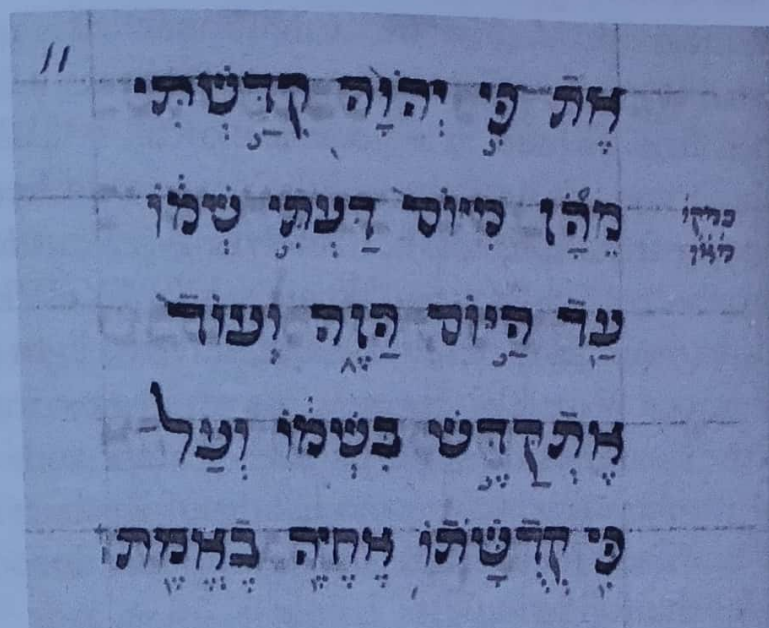 אֶת פִּי יְהוָה קִדַּשְׁתִּי
מֵהָן מִיוֹם דַּעְתִּי שְׁמוֹ
עַד הַיּוֹם הַזֶּה וְעוֹד
אֶתְקַדֵּשׁ בִּשְׁמוֹ וְעַל
פִּי קְדֻשָּׁתוֹ אֶחְיֶה בֶּאֱמֶת